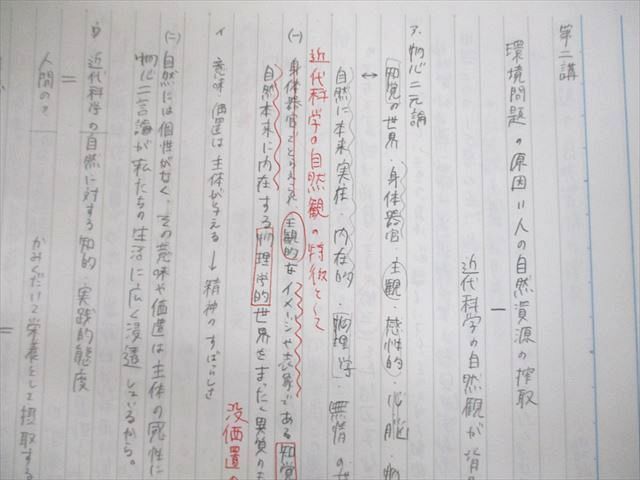 第二講
環境問題の原因=人の自然資源の搾取
近代科学の自然観が背
ア.物心二元論
知覚の世界・身体器官・主観・感性的・心/脳・物
↔
自然に本来実在・内在的・物理学・無情の世
近代科学の自然観の特徴として
(一) 身体器官でとらえられ、主観的なイメージや表象である知覚
自然本来に内在する物理学的世界をまったく異質のも
没価値の
イ 意味・価値は主体が与える→精神のすばらしさ
(二) 自然には個性がなく、その意味や価値は主体の感性に
物心二言論が私たちの生活に広く浸透しているから。
ウ 近代科学の自然に対する知的・実践的態度
=
人間の
かみくだいて栄養として摂取する
=